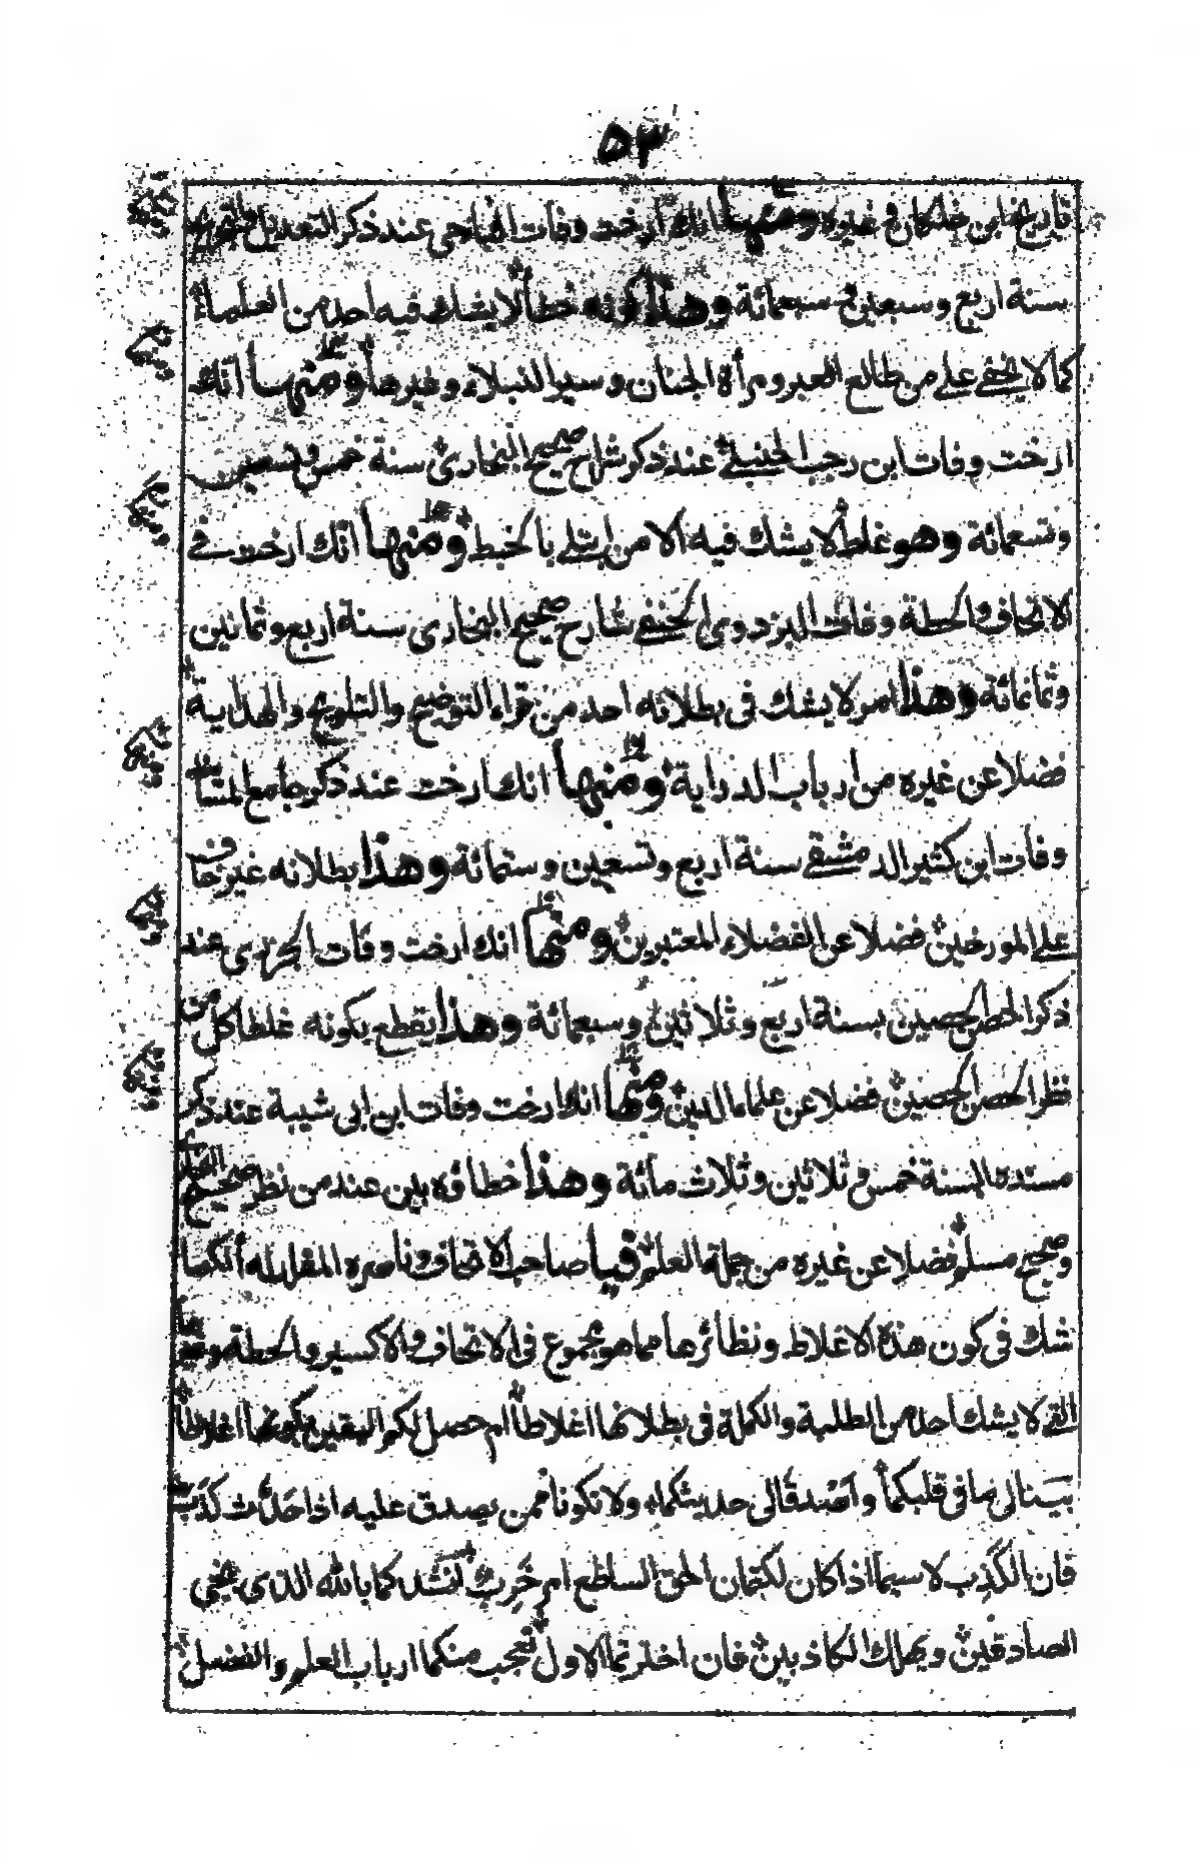 ٥٣
تاريخ ابن خلكان وغيره ومنها انك ارخت وفات الباجى عند ذكر التعديل والتجريح
بسنة اربع وسبعين وسبعمائة وهذا كونه خطأ لا يشك فيه احد من العلماء
كما لا يخفى على من طالع العبر ومرأة الجنان وسير النبلاء وغيرها ومنها انك
ارخت وفات ابن رجب الحنبلى عند ذكر شراح صحيح البخارى سنة خمس وتسعين
وتسعمائة وهو غلط لا يشك فيه الا من ابتلى بالخبط ومنها انك ارخت فى
الاتحاف والحطة وفات البزدوى الحنفى شارح صحيح البخارى سنة اربع وثمانين
وثمانمائة وهذا امر لا يشك فى بطلانه احد من قراء التوضيح والتلويح والهداية
فضلا عن غيره من ارباب الدراية ومنها انك ارخت عند ذكر جامع المسانيد
وفات ابن كثير الدمشقى سنة اربع وتسعين وستمائة وهذا بطلانه غير خاف
على المورخين فضلا عن الفضلاء المعتبرين ومنها انك ارخت وفات الجزرى عند
ذكر الحصن الحصين بسنة اربع وثلاثين وسبعمائة وهذا يقطع بكونه غلطا كل من
نظر الحصن الحصين فضلا عن علماء الدين ومنها انك ارخت وفات ابن ابى شيبة عند ذكر
مسنده السنة خمس وثلاثين وثلاث مائة وهذا خطاؤه بين عند من نظر صحيح البخارى
وصحيح مسلم فضلا عن غيره من جملة العلم فيا صاحب الاتحاف وناصره المقلد له ألكما
شك فى كون هذه الاغلاط ونظائرها مما هو مجموع فى الاتحاف والاكسير والحطة وغيرها
التى لا يشك احد من الطلبة والكملة فى بطلانها اغلاطا أم حصل لكم اليقين بكونها اغلاطا
بينا لى ما فى قلبكما واصدقا لى حديثكما ولا تكونا ممن يصدق عليه اذا حدث كذب
فان الكذب لا سيما اذا كان لكتمان الحق الساطع امر خرب أنشدكما بالله الذى ينجى
الصادقين ويهلك الكاذبين فان اخترتما الاول تعجب منكما ارباب العلم والفضل